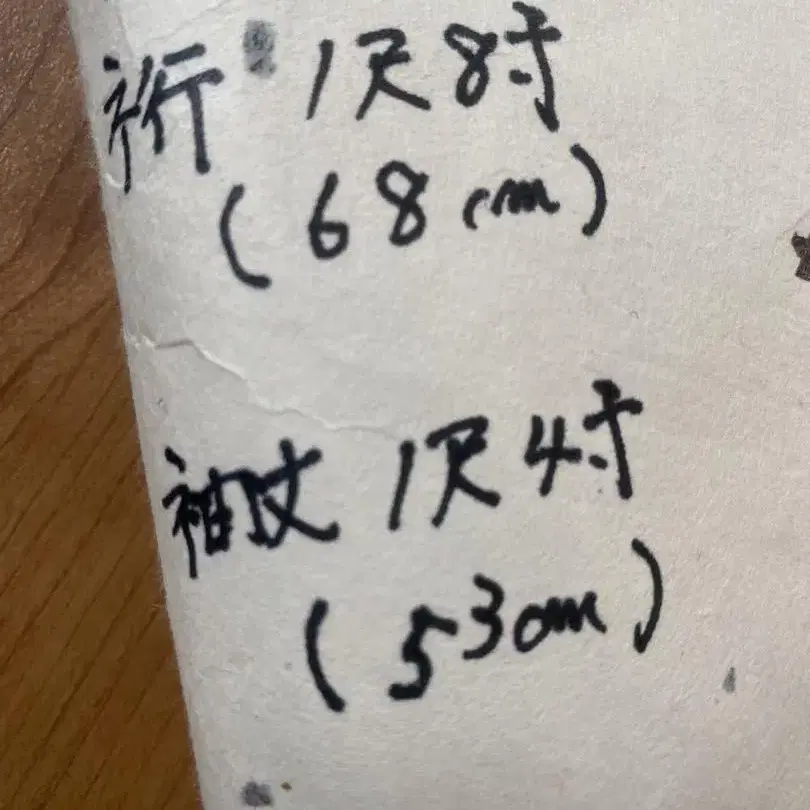 裄 1尺8寸
(68cm)
袖丈 1尺4寸
(53cm)